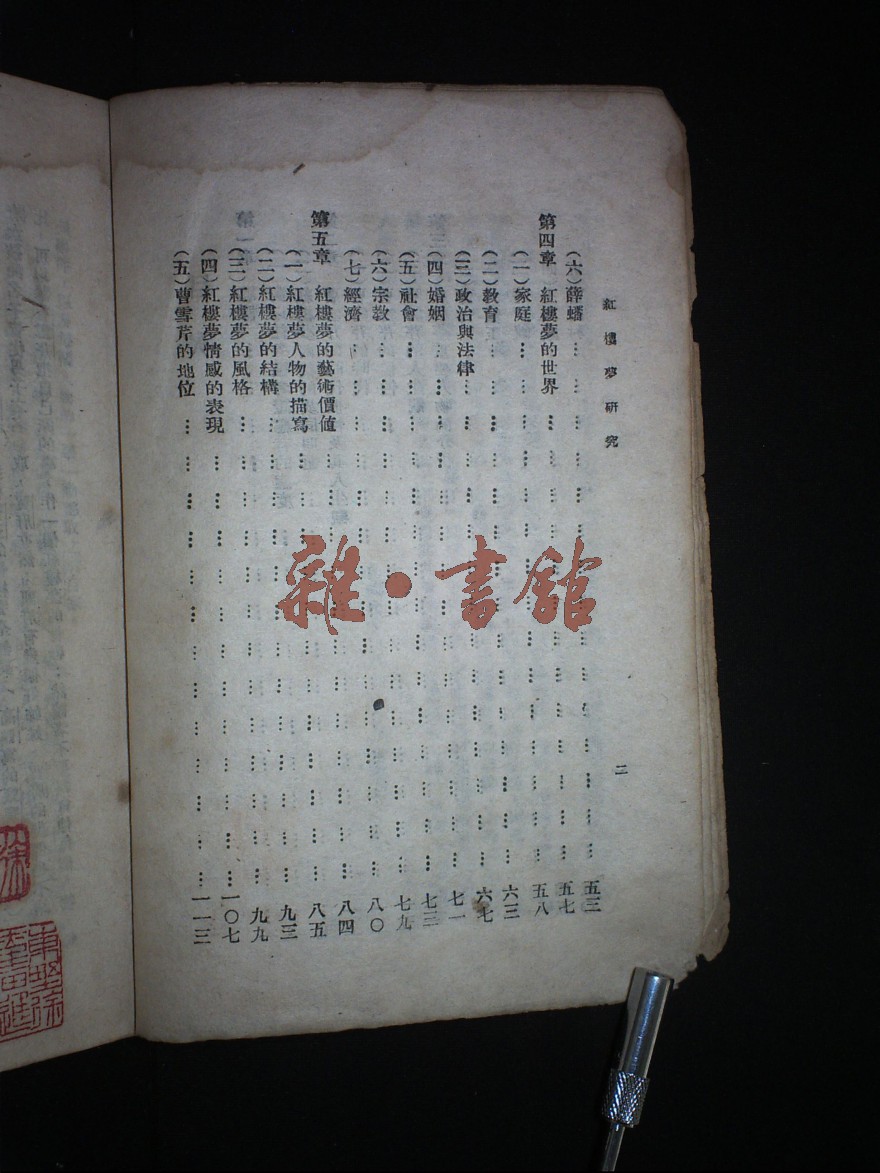 紅樓夢研究
二
(六)薛蟠 ⋯ ⋯ ⋯ ⋯ ⋯ ⋯ 五三
第四章 紅樓夢的世界 ⋯ ⋯ ⋯ ⋯ ⋯ 五七
(一)家庭 ⋯ ⋯ ⋯ ⋯ ⋯ ⋯ 五八
(二)教育 ⋯ ⋯ ⋯ ⋯ ⋯ ⋯ 六三
(三)政治與法律 ⋯ ⋯ ⋯ ⋯ ⋯ 六七
(四)婚姻 ⋯ ⋯ ⋯ ⋯ ⋯ ⋯ 七一
(五)社會 ⋯ ⋯ ⋯ ⋯ ⋯ ⋯ 七三
(六)宗教 ⋯ ⋯ ⋯ ⋯ ⋯ ⋯ 七九
(七)經濟 ⋯ ⋯ ⋯ ⋯ ⋯ ⋯ 八〇
第五章 紅樓夢的藝術價値 ⋯ ⋯ ⋯ ⋯ 八四
(一)紅樓夢人物的描寫 ⋯ ⋯ ⋯ ⋯ 八五
(二)紅樓夢的結構 ⋯ ⋯ ⋯ ⋯ ⋯ 九三
(三)紅樓夢的風格 ⋯ ⋯ ⋯ ⋯ ⋯ 九九
(四)紅樓夢情感的表現 ⋯ ⋯ ⋯ ⋯ 一〇七
(五)曹雪芹的地位 ⋯ ⋯ ⋯ ⋯ ⋯ 一一三
雜·書館